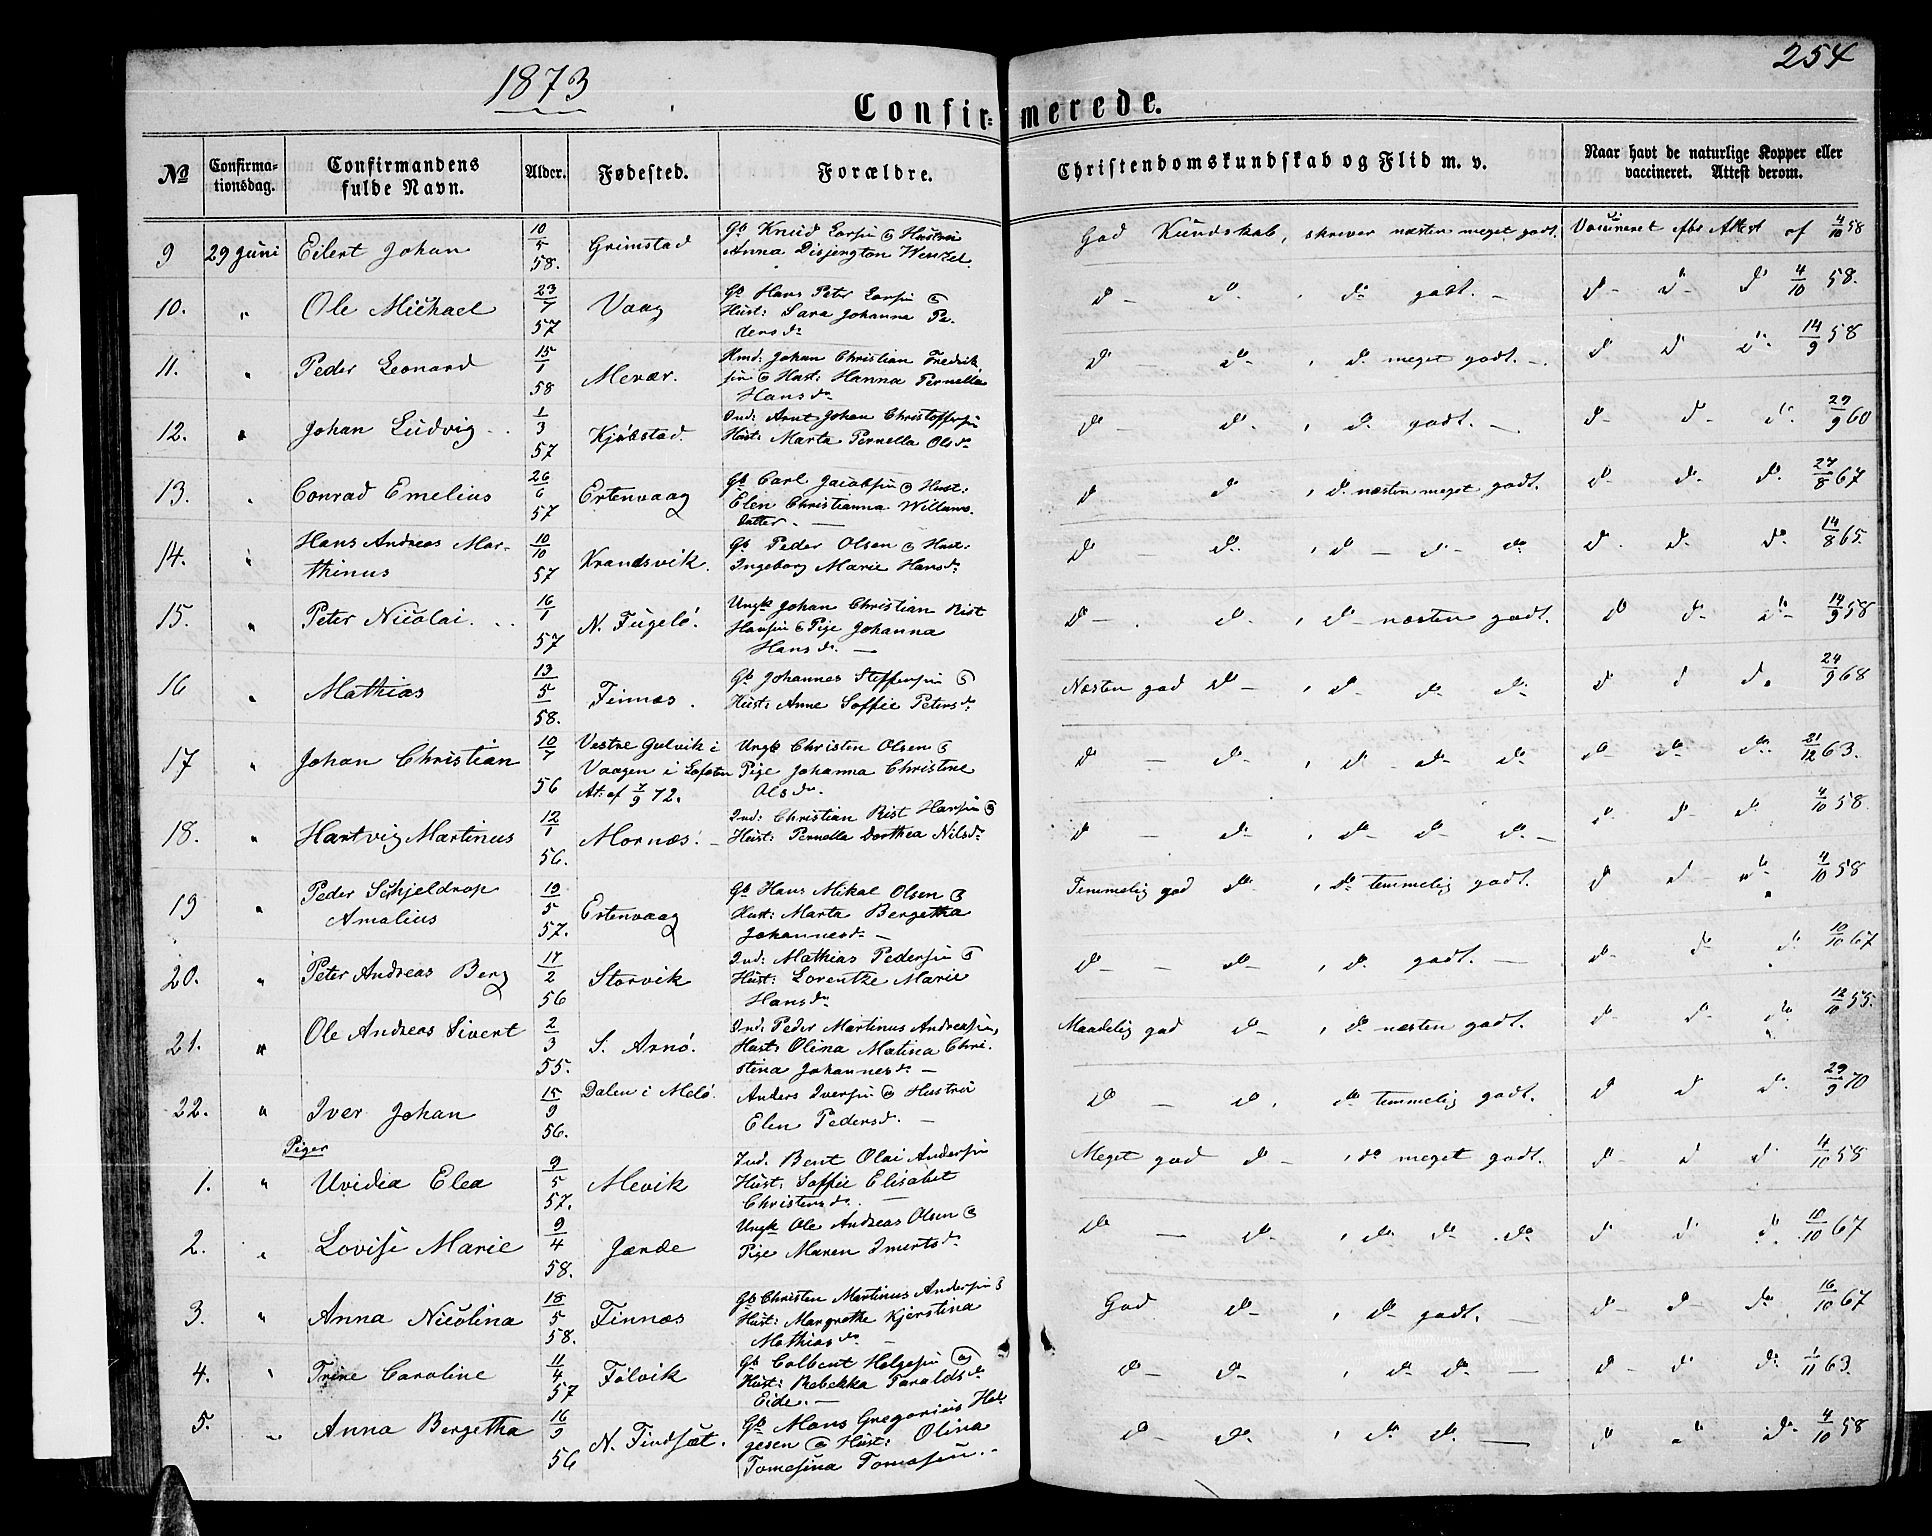 1873
254
Confirmerede.
№ Confirmationsdag. Confirmandens fulde Navn. Alder. Fødested. Forældre. Christendomskundskab og Flid m. v. Naar havt de naturlige Kopper eller vaccineret. Attest derom.
9 29 Juni Eilert Johan 10/5 58. Grimstad Gb Knud Larsen & Hustru Anna God Kundskab, skrever næsten meget godt. Vaccineret efter Attest af 4/10 58
10. " Ole Michael 23/7 57 Vaag Gb Hans Peter Larsen & Hust: Sara Johanna Pedersdr do do, do godt. – do do do 4/10 58.
11. " Peder Leonard 15/1 58 Mevær. Hmd: Johan Christian Fredriksen & Hust: Hanna Pernella Hansdr do do, do meget godt. – do do do 14/9 58
12. " Johan Ludvig 1/3 57 Kjøbstad. Ind: Arnt Johan Christoffersen Hust: Marta Pernella Olsdr do do, do godt. – do do do 29/9 60
13. " Conrad Emelius 26/6 57 Ertenvaag Gb Carl Jacobsen & Hust: Elen Christianna Willumsdatter. – do do, do næsten meget godt. do do do 27/8 67
14. " Hans Andreas Marthinus 10/10 57 Krandsvik. Gb Peder Olsen & Hust: Ingeborg Marie Hansdr do do, do – do do do do do 14/8 65.
15. " Peter Nicolai. 16/1 57 N. Fugelö. Ungk Johan Christian Rist Hansen & Pige Johanna Hansdr. – do do, do næsten godt. do do do 14/9 58
16 " Mathias 13/5 58. Finnæs. Gb Johannes Steffensen & Hust: Anne Soffie Petersdr Næsten god do –, do do do do do do 24/9 68
17 " Johan Christian 10/7 56 Vestre Gulvik i Vaagen i Lofoten At: af 7/9 72. Ungk Christen Olsen & Pige Johanna Christine Olsdr. do – do, do do do do do do 21/12 63.
18. " Hartvig Martinus 12/1 56. Mornæs. – Ind: Christian Rist Hansen & Hust: Pernella Dorthea Nilsdr do – do, do do do – do do do 4/10 58.
19 " Peder Schjeldrop Amalius 19/5 57. Ertenvaag Gb Hans Mikal Olsen & Hust: Marta Bergetha Johannesdr – Temmelig god do, do temmelig godt. do do do 4/10 58
20. " Peter Andreas Berg 17/2 56 Storvik Ind: Mathias Pedersen & Hust: Lorentze Marie Hansdr do – do, do godt. – do do do 10/10 67
21. " Ole Andreas Sivert 2/3 55. S. Arnö. Ind: Peder Martinus Andreasen, Hust: Olina Matina Christina Johannesdr – Maadelig god do, do næsten godt. do do do 12/10 55.
22. " Iver Johan 15/9 56. Dalen i Melö. Anders Iversen & Hustru Elen Pedersd. – do – do, do temmelig godt. do do do 29/9 70
Piger
1. " Uvidia Elea 9/5 57. Mevik Ind. Bent Olai Andersen Hust: Soffie Elisabet Christensdr. – Meget god do –, do meget godt. do do do 4/10 58
2. " Lovise Marie 9/4 58. Jærde Ungk Ole Andreas Olsen & Pige Maren Imertsdr do – do, do do do do do do 10/10 67
3. " Anna Nicolina 18/5 58. Finnæs Gb Christen Martinus Andersen & Hust: Margrethe Kjerstina Mathiasdr – God do, do godt. – do do do 16/10 67
4. " Trine Caroline 11/4 57 Følvik Gb Colbent Helgesen og Hust: Rebekka Taraldsdr Eide. – do do, do do – do do do 1/11 63.
5. " Anna Bergetha 16/9 56 N. Findset. Gb Mons Gregorius Helgesen & Hust: Olina Tomesina Tomasen. – do do, do do – do do do 4/10 58